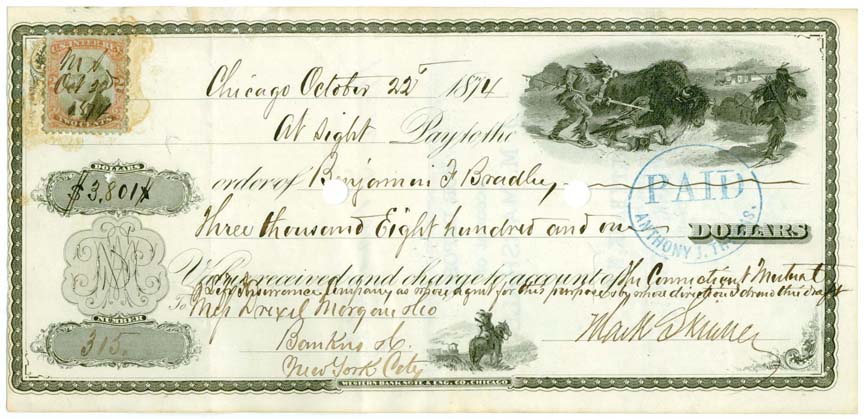 U.S. INTER. REV.
M S
Oct 22
1874
TWO CENTS
Chicago October 22d 1874
At sight Pay to the
DOLLARS
$3,801
order of Benjamin F Bradley
PAID
ANTHONY J.
Three thousand Eight hundred and one DOLLARS
Value received and charge to account of The Connecticut Mutual
Life Insurance Company as whose agent for this purpose & by whose direction I draw this draft
To Mess Drexel Morgan & Co
Mark Skinner
NUMBER
315.
Bankers &c.
New York City
WESTERN BANK NOTE & ENG. CO. CHICAGO